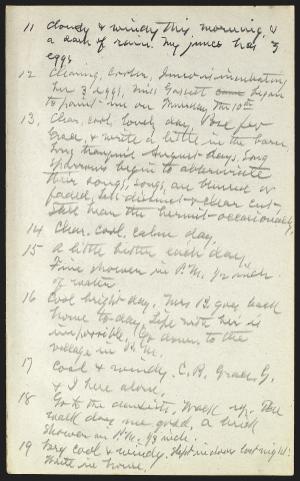 11 Cloudy & windy this morning, &
a dash of rain. My junco has 3
eggs
12 Clearing, cooler, Junco is incubating
her 3 eggs, Miss Gassett began
to paint me on Thursday, the 10th
13, Clear, cool, lovely day,
& write a little in the barn,
long tranquil August days, Song
sparrows begin to abbreviate
their songs, songs are blurred or
faded, less distinct & clear cut,
Still hear the hermit occasionally,
14 Clear, cool, calm day,
15 A little better each day,
Fine shower in P.M. 1/2 inch
of water,
16 Cool bright day, Mrs B goes back
home to-day, life with her is
impossible, Go down to the
village in P.M.
17 Cool & windy. C.B. G.
& I here alone,
18 Go to the dentists, Walk up. The
walk does me good, a brisk
shower in P.M. 1/3 inch.
19 Very cool & windy. Slept in doors last night.
Write in house,